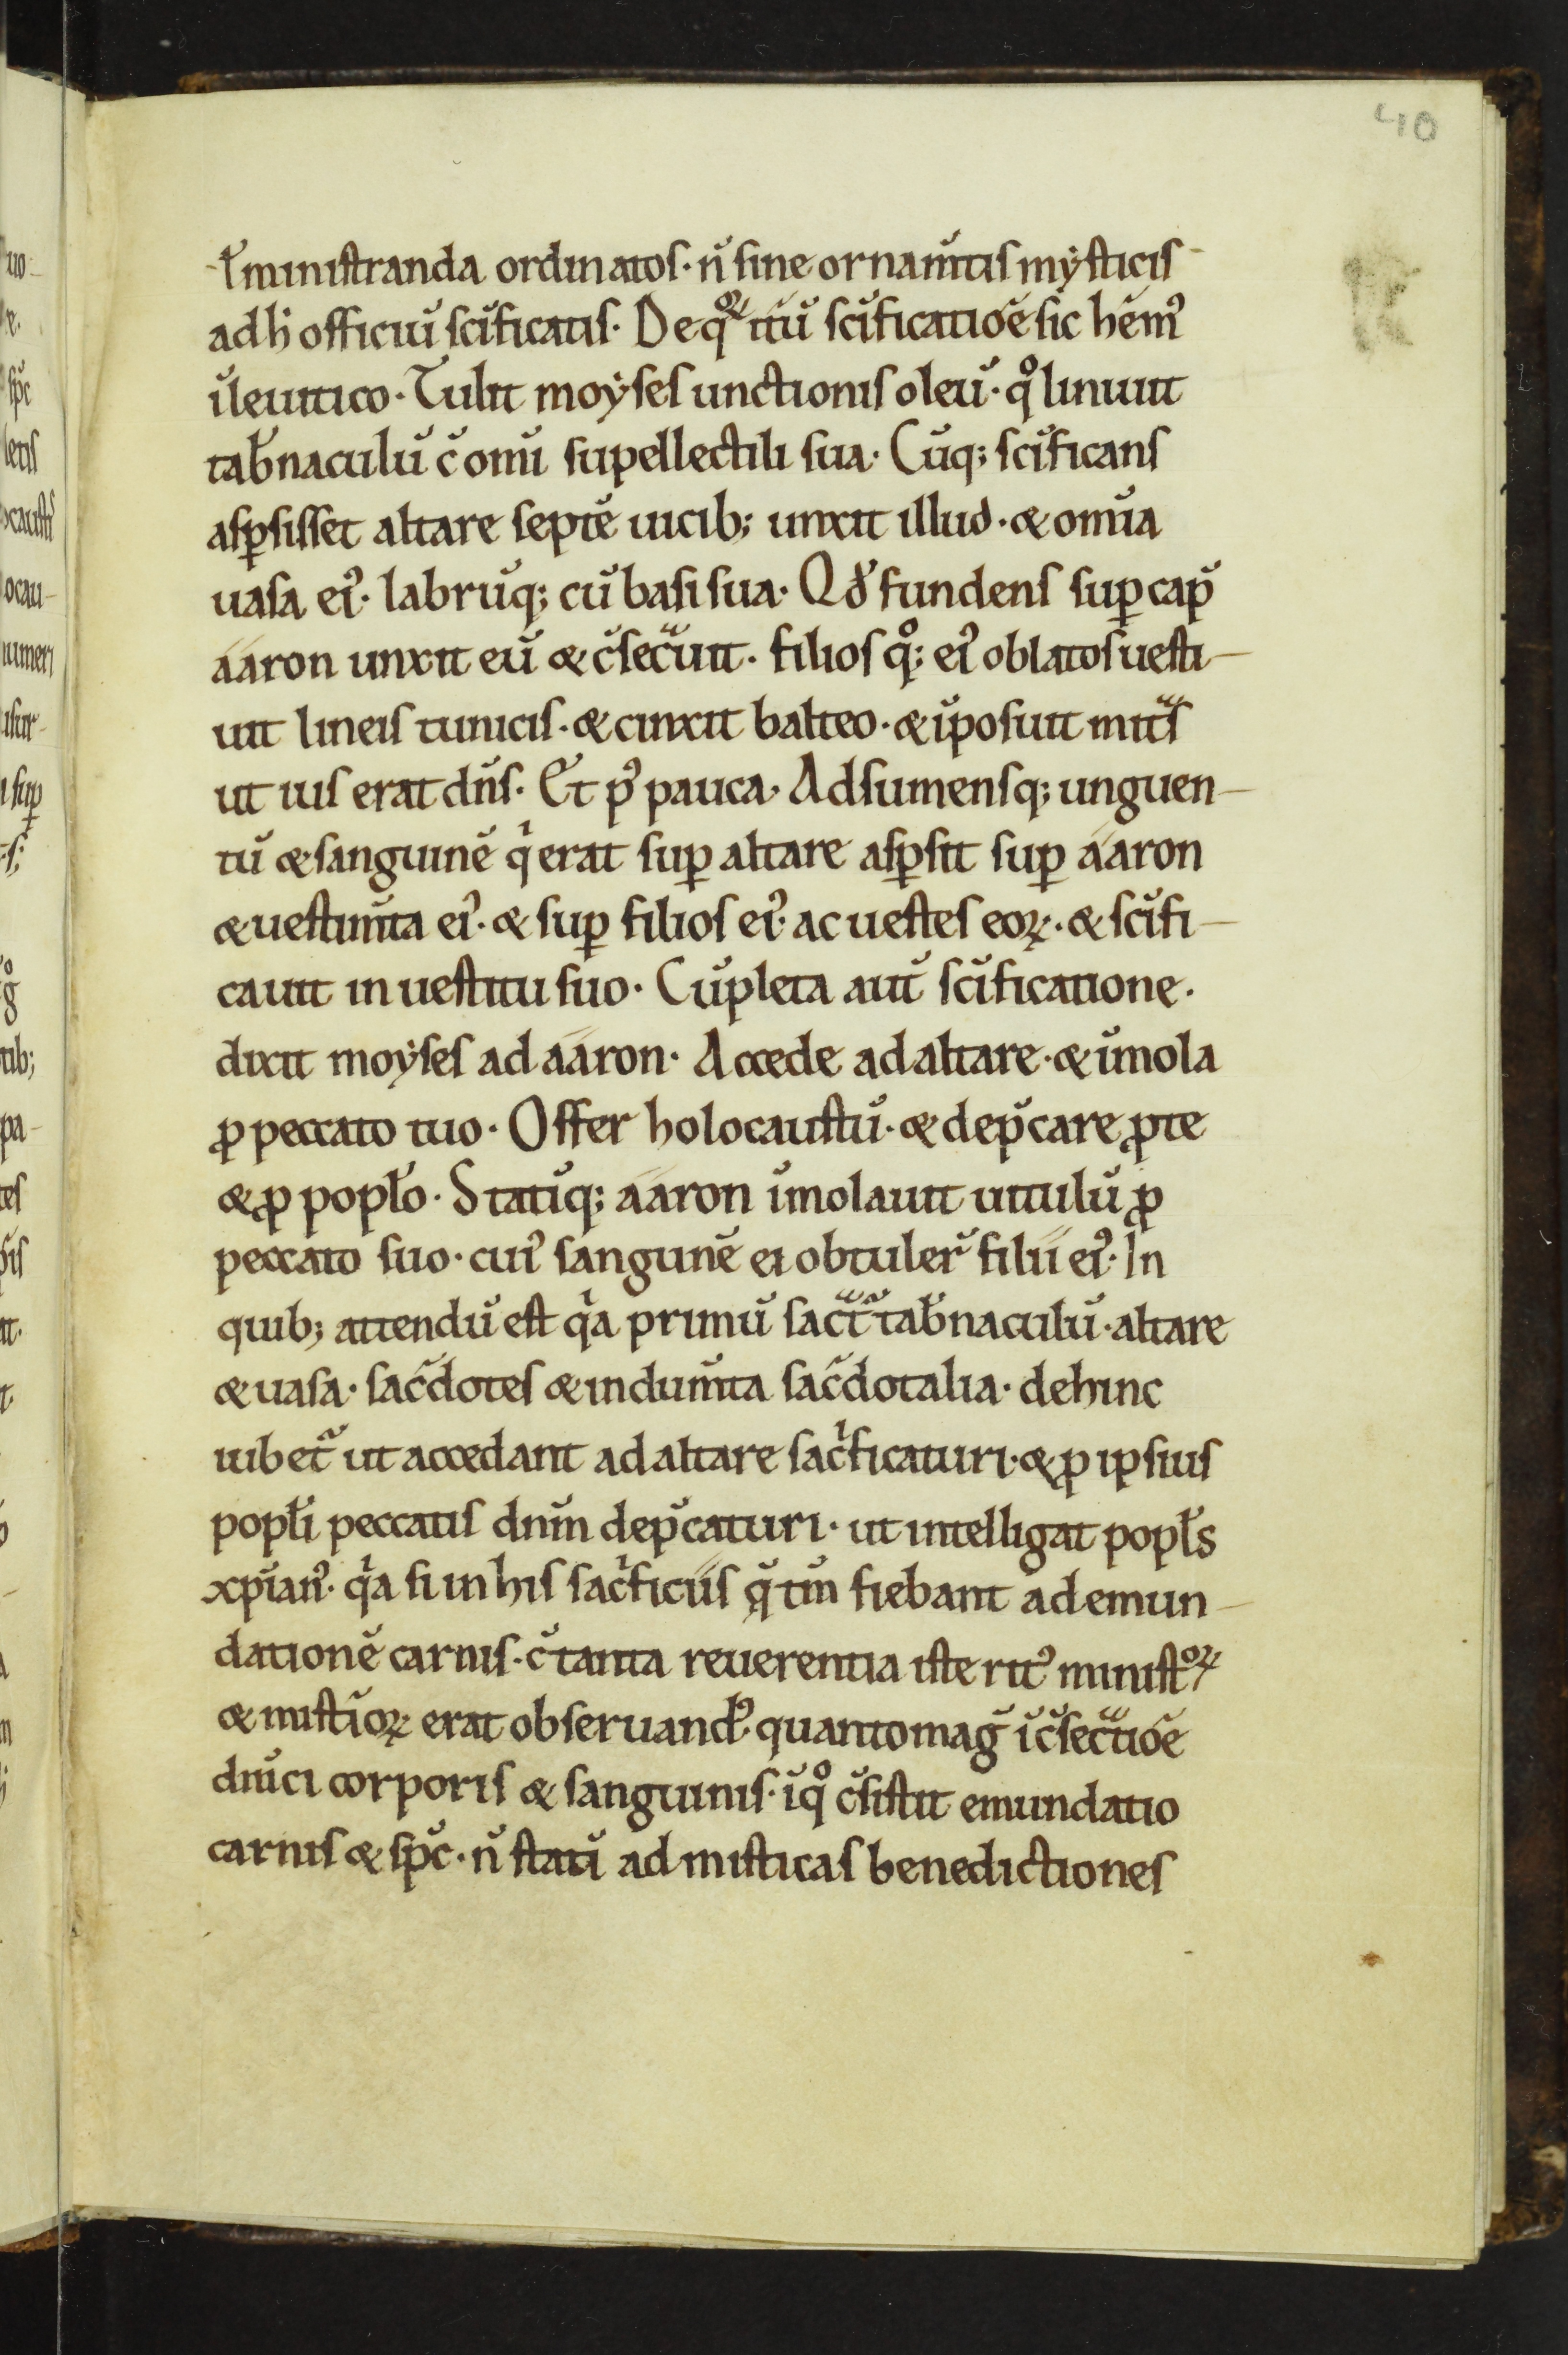 40
ł ministranda ordinatos· n̄ sine ornam̄tis mẏsticis
ad h̵ officiū sc̄ificatis· De qͦꝝ itū sc̄ificatiōe sic hēmꝰ
ī leuitico· Tulit moẏses unctionis oleū· qͦ liniuit
tab̄naculū c̄ omī supellectili sua· Cūq; sc̄ificans
asꝑsisset altare septē uicib; unxit illud· & om̄ia
uasa eiꝰ· labrūq; cū basi sua· Qd̄ fundens suꝑ cap̄
ááron unxit eū & c̄sec̄uit· filiosqͦ; eiꝰ oblatos uesti-
uit lineis tunicis· & cinxit balteo· & īposuit mit̄s
ut iuss erat dn̄s· Et pꝰ pauca· Adsumensq; unguen-
tū & sanguinē qͥ erat suꝑ altare asꝑsit suꝑ ááron
& uestim̄ta eiꝰ· & suꝑ filios eiꝰ· ac uestes eoꝝ· & sc̄ifi-
cauit in uestitu suo· Cūpleta aut̄ sc̄ificatione·
dixit moẏses ad ááron· Accede ad altare· & īmola
ꝓ peccato tuo· Offer holocaustū· & dep̄care ꝓ te
& ꝓ popło· Statīq; ááron īmolauit uitulū ꝓ
peccato suo· cuiꝰ sanguinē ei obtuler̄ filíí eiꝰ· In
quib; attendū est qͥa primū sac̄t̄ tab̄naculū· altare
& uasa· sac̄dotes & indum̄ta sac̄dotalia· dehinc
iubet̄ ut accedant ad altare sacͥficaturi· & ꝓ ipsius
popłi peccatis dn̄m dep̄caturi· ut intelligat popłs
xp̄ianꝰ· qͥa si in his sacͥficíís q̄ tm̄ fiebant ad emun-
dationē carnis· c̄ tanta reuerentia iste ritꝰ ministͦꝝ
& mist̄ioꝝ erat obseruandꝰ quanto maḡ ī c̄sec̄tiōe
dn̄ici corporis & sanguinis· ī qͦ c̄sistit emundatio
carnis & sp̄c· n̄ statī ad misticas benedictiones